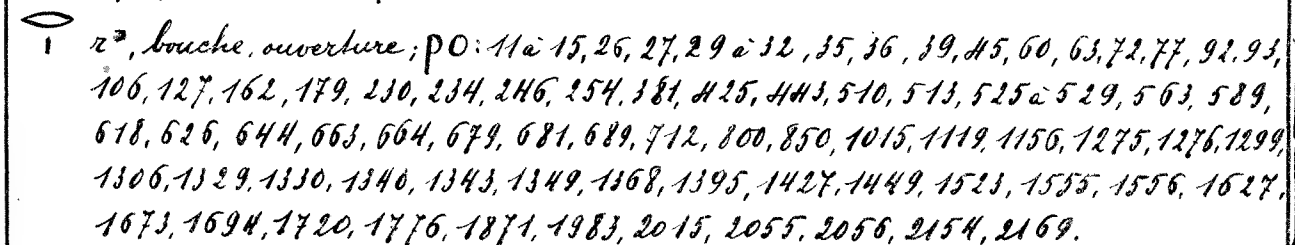 𓂋𓏤 rꜣ, bouche, ouverture; ⲣⲟ: 11 à 15, 26, 27, 29 à 32, 35, 36, 39, 45, 60, 63, 72, 77, 92, 93,
106, 127, 162, 179, 230, 234, 246, 254, 381, 425, 443, 510, 513, 525 à 529, 563, 589,
618, 626, 644, 663, 664, 679, 681, 689, 712, 800, 850, 1015, 1119, 1156, 1275, 1276, 1299,
1306, 1329, 1330, 1340, 1343, 1349, 1368, 1395, 1427, 1449, 1523, 1555, 1556, 1627,
1673, 1694, 1720, 1776, 1871, 1983, 2015, 2055, 2056, 2154, 2169.